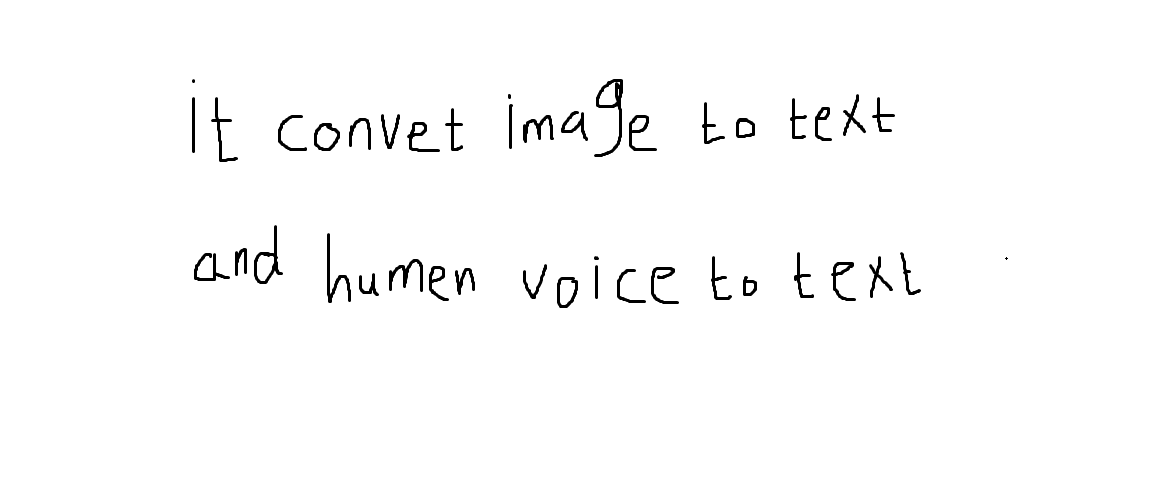 it convet image to text
and humen voice to text